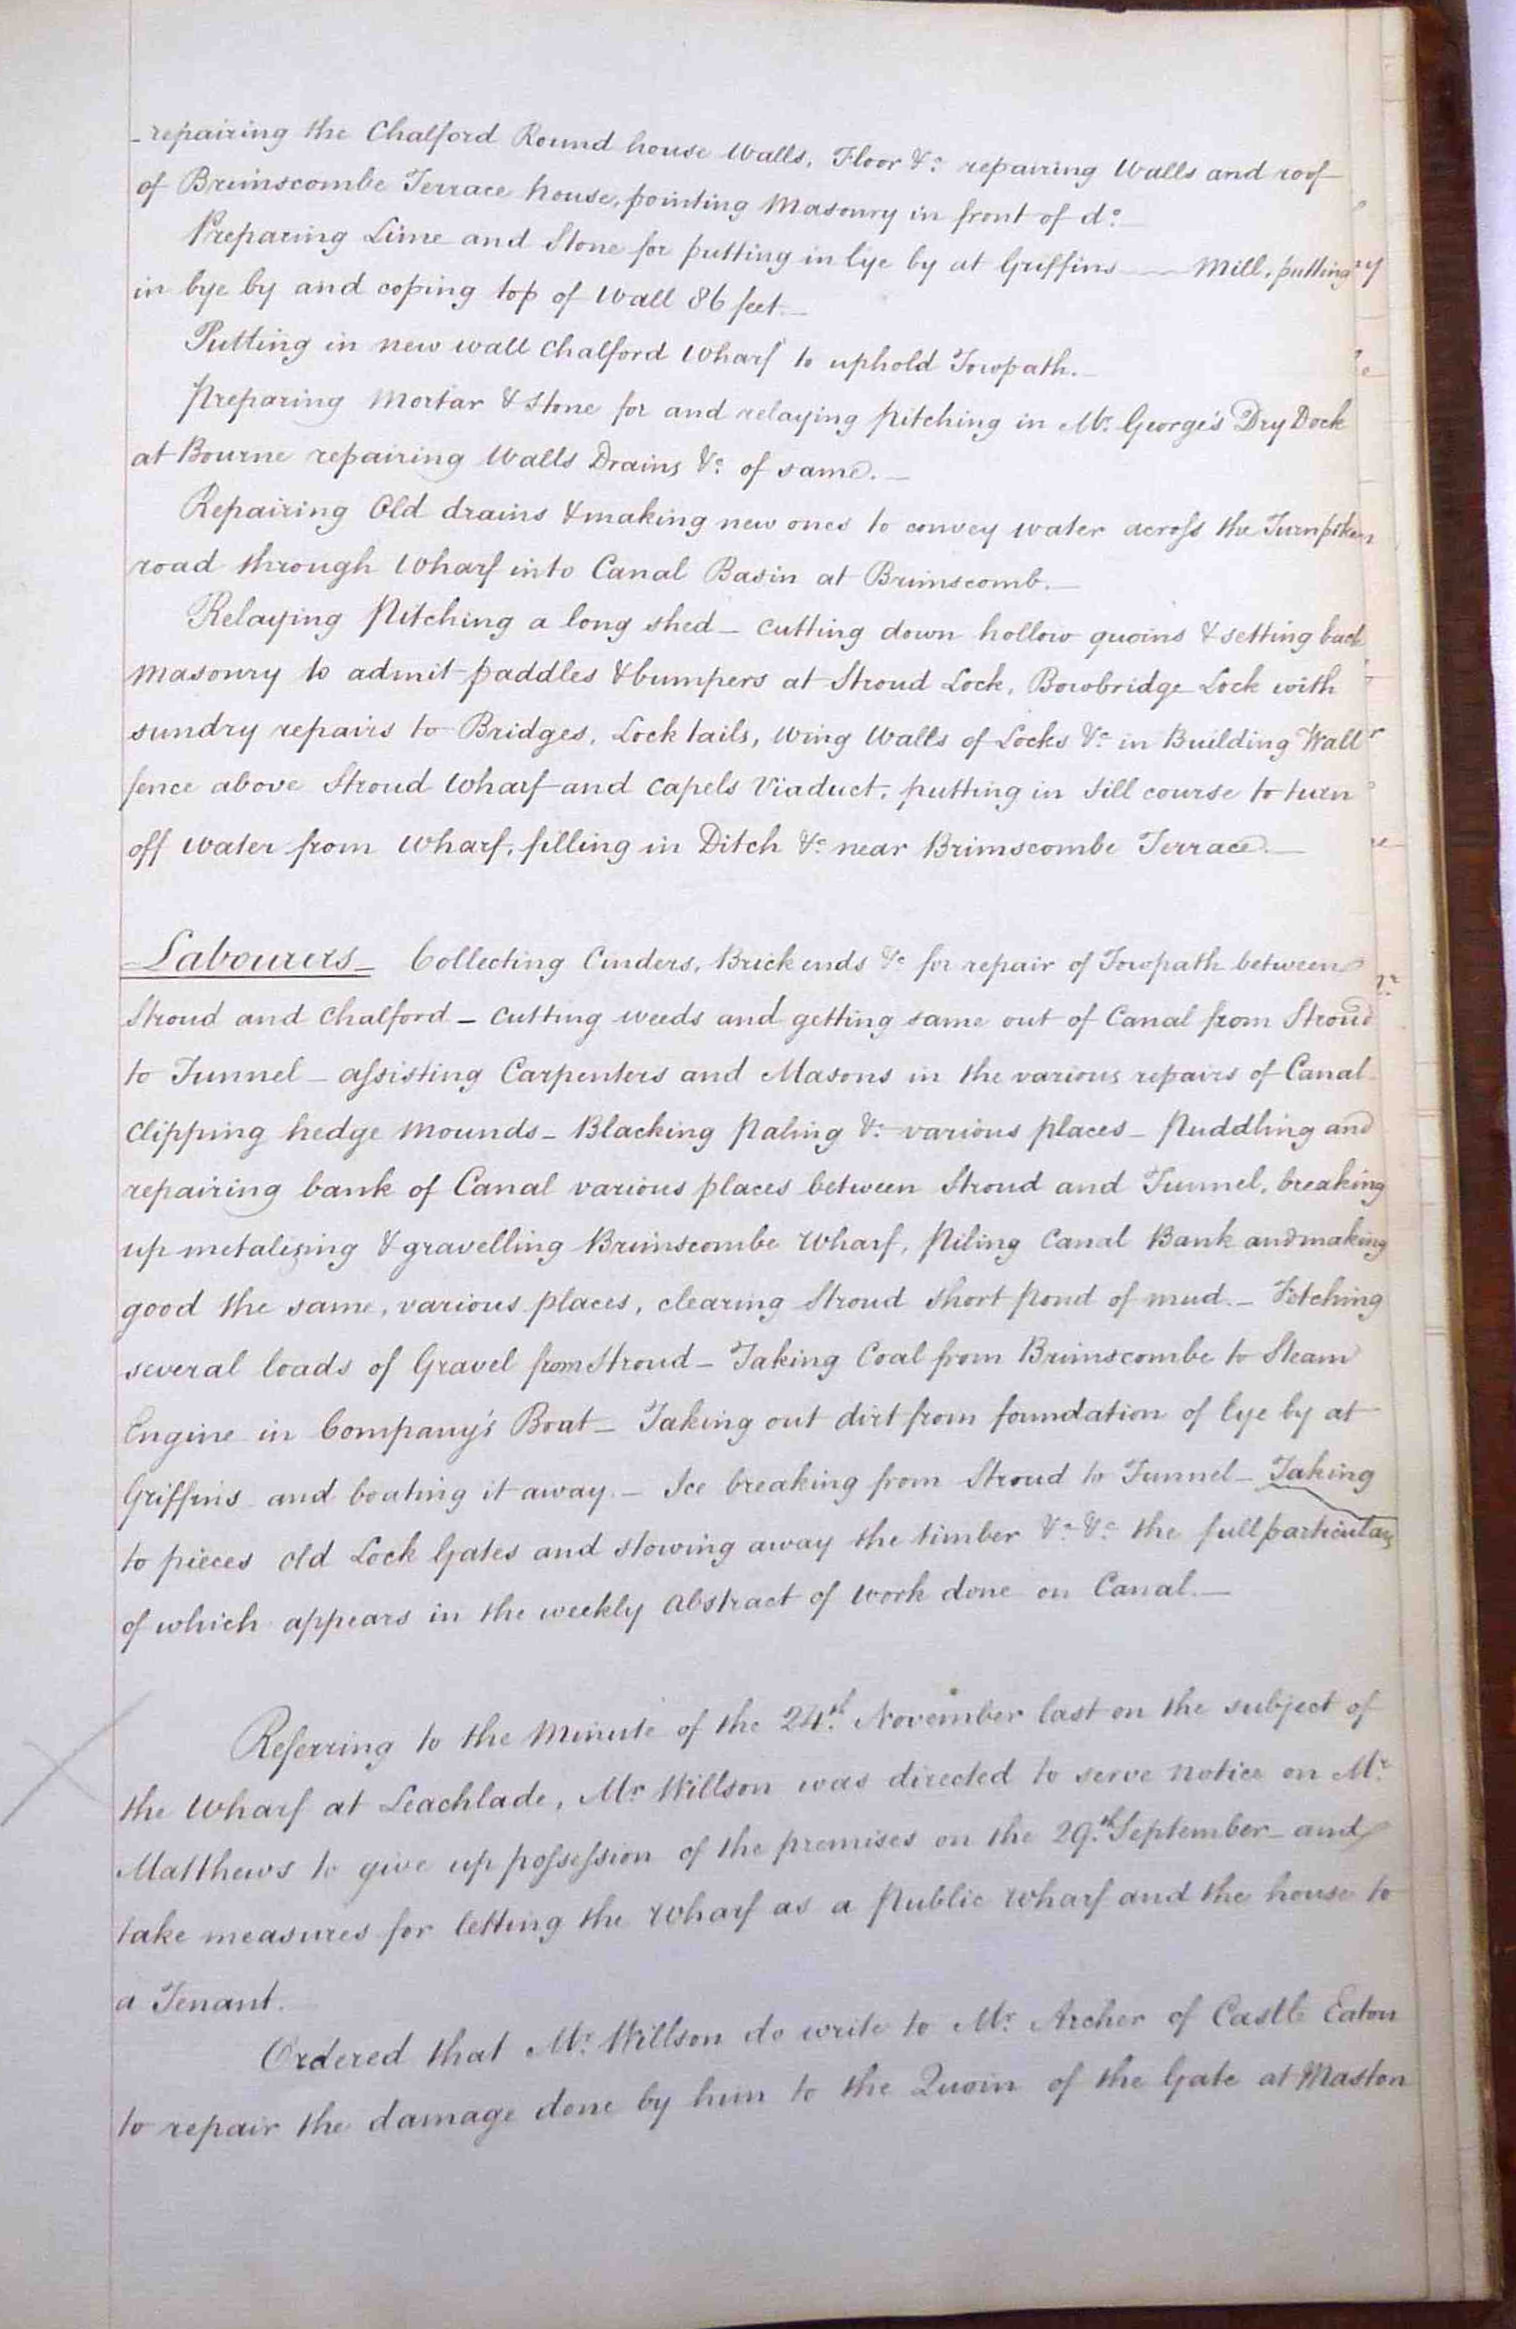 - repairing the Chalford Round house Walls, Floor &c. repairing Walls and roof
of Brimscombe Terrace house, pointing Masonry in front of do. —
Preparing Lime and Stone for putting in lye by at Griffins —— Mill, putting
in bye by and coping top of Wall 86 feet. —
Putting in new wall Chalford Wharf to uphold Towpath. —
Preparing Mortar & Stone for and relaying pitching in Mr. George's Dry Dock
at Bourne repairing Walls Drains &c. of same. —
Repairing Old drains & making new ones to convey water across the Turnpike
road through Wharf into Canal Basin at Brimscomb. —
Relaying Pitching a long shed — cutting down hollow quoins & setting back
masonry to admit paddles & bumpers at Stroud Lock, Bowbridge Lock with
sundry repairs to Bridges, Lock tails, Wing Walls of Locks &c. in Building Wall
fence above Stroud Wharf and Capels Viaduct, putting in sill course to turn
off water from Wharf, filling in Ditch &c. near Brimscombe Terrace. —
Labourers — Collecting Cinders, Brick ends &c. for repair of Towpath between
Stroud and Chalford — cutting weeds and getting same out of Canal from Stroud
to Tunnel — assisting Carpenters and Masons in the various repairs of Canal
Clipping hedge mounds — Blacking Paling &c. various places — Puddling and
repairing bank of Canal various places between Stroud and Tunnel, breaking
up metalizing & gravelling Brimscombe Wharf, Piling Canal Bank and making
good the same, various places, clearing Stroud Short pond of mud. — Fetching
several loads of Gravel from Stroud — Taking Coal from Brimscombe to Steam
Engine in Company's Boat — Taking out dirt from foundation of lye by at
Griffins and boating it away. — Ice breaking from Stroud to Tunnel — Taking
to pieces old Lock Gates and stowing away the timber &c. &c. the full particulars
of which appears in the weekly Abstract of work done on Canal. —
Referring to the Minute of the 24th. November last on the subject of
the Wharf at Leachlade, Mr Willson was directed to serve notice on Mr.
Matthews to give up possession of the premises on the 29th. September — and
take measures for letting the Wharf as a Public Wharf and the house to
a Tenant.
Ordered that Mr. Willson do write to Mr. Archer of Castle Eaton
to repair the damage done by him to the Quoin of the Gate at Maston